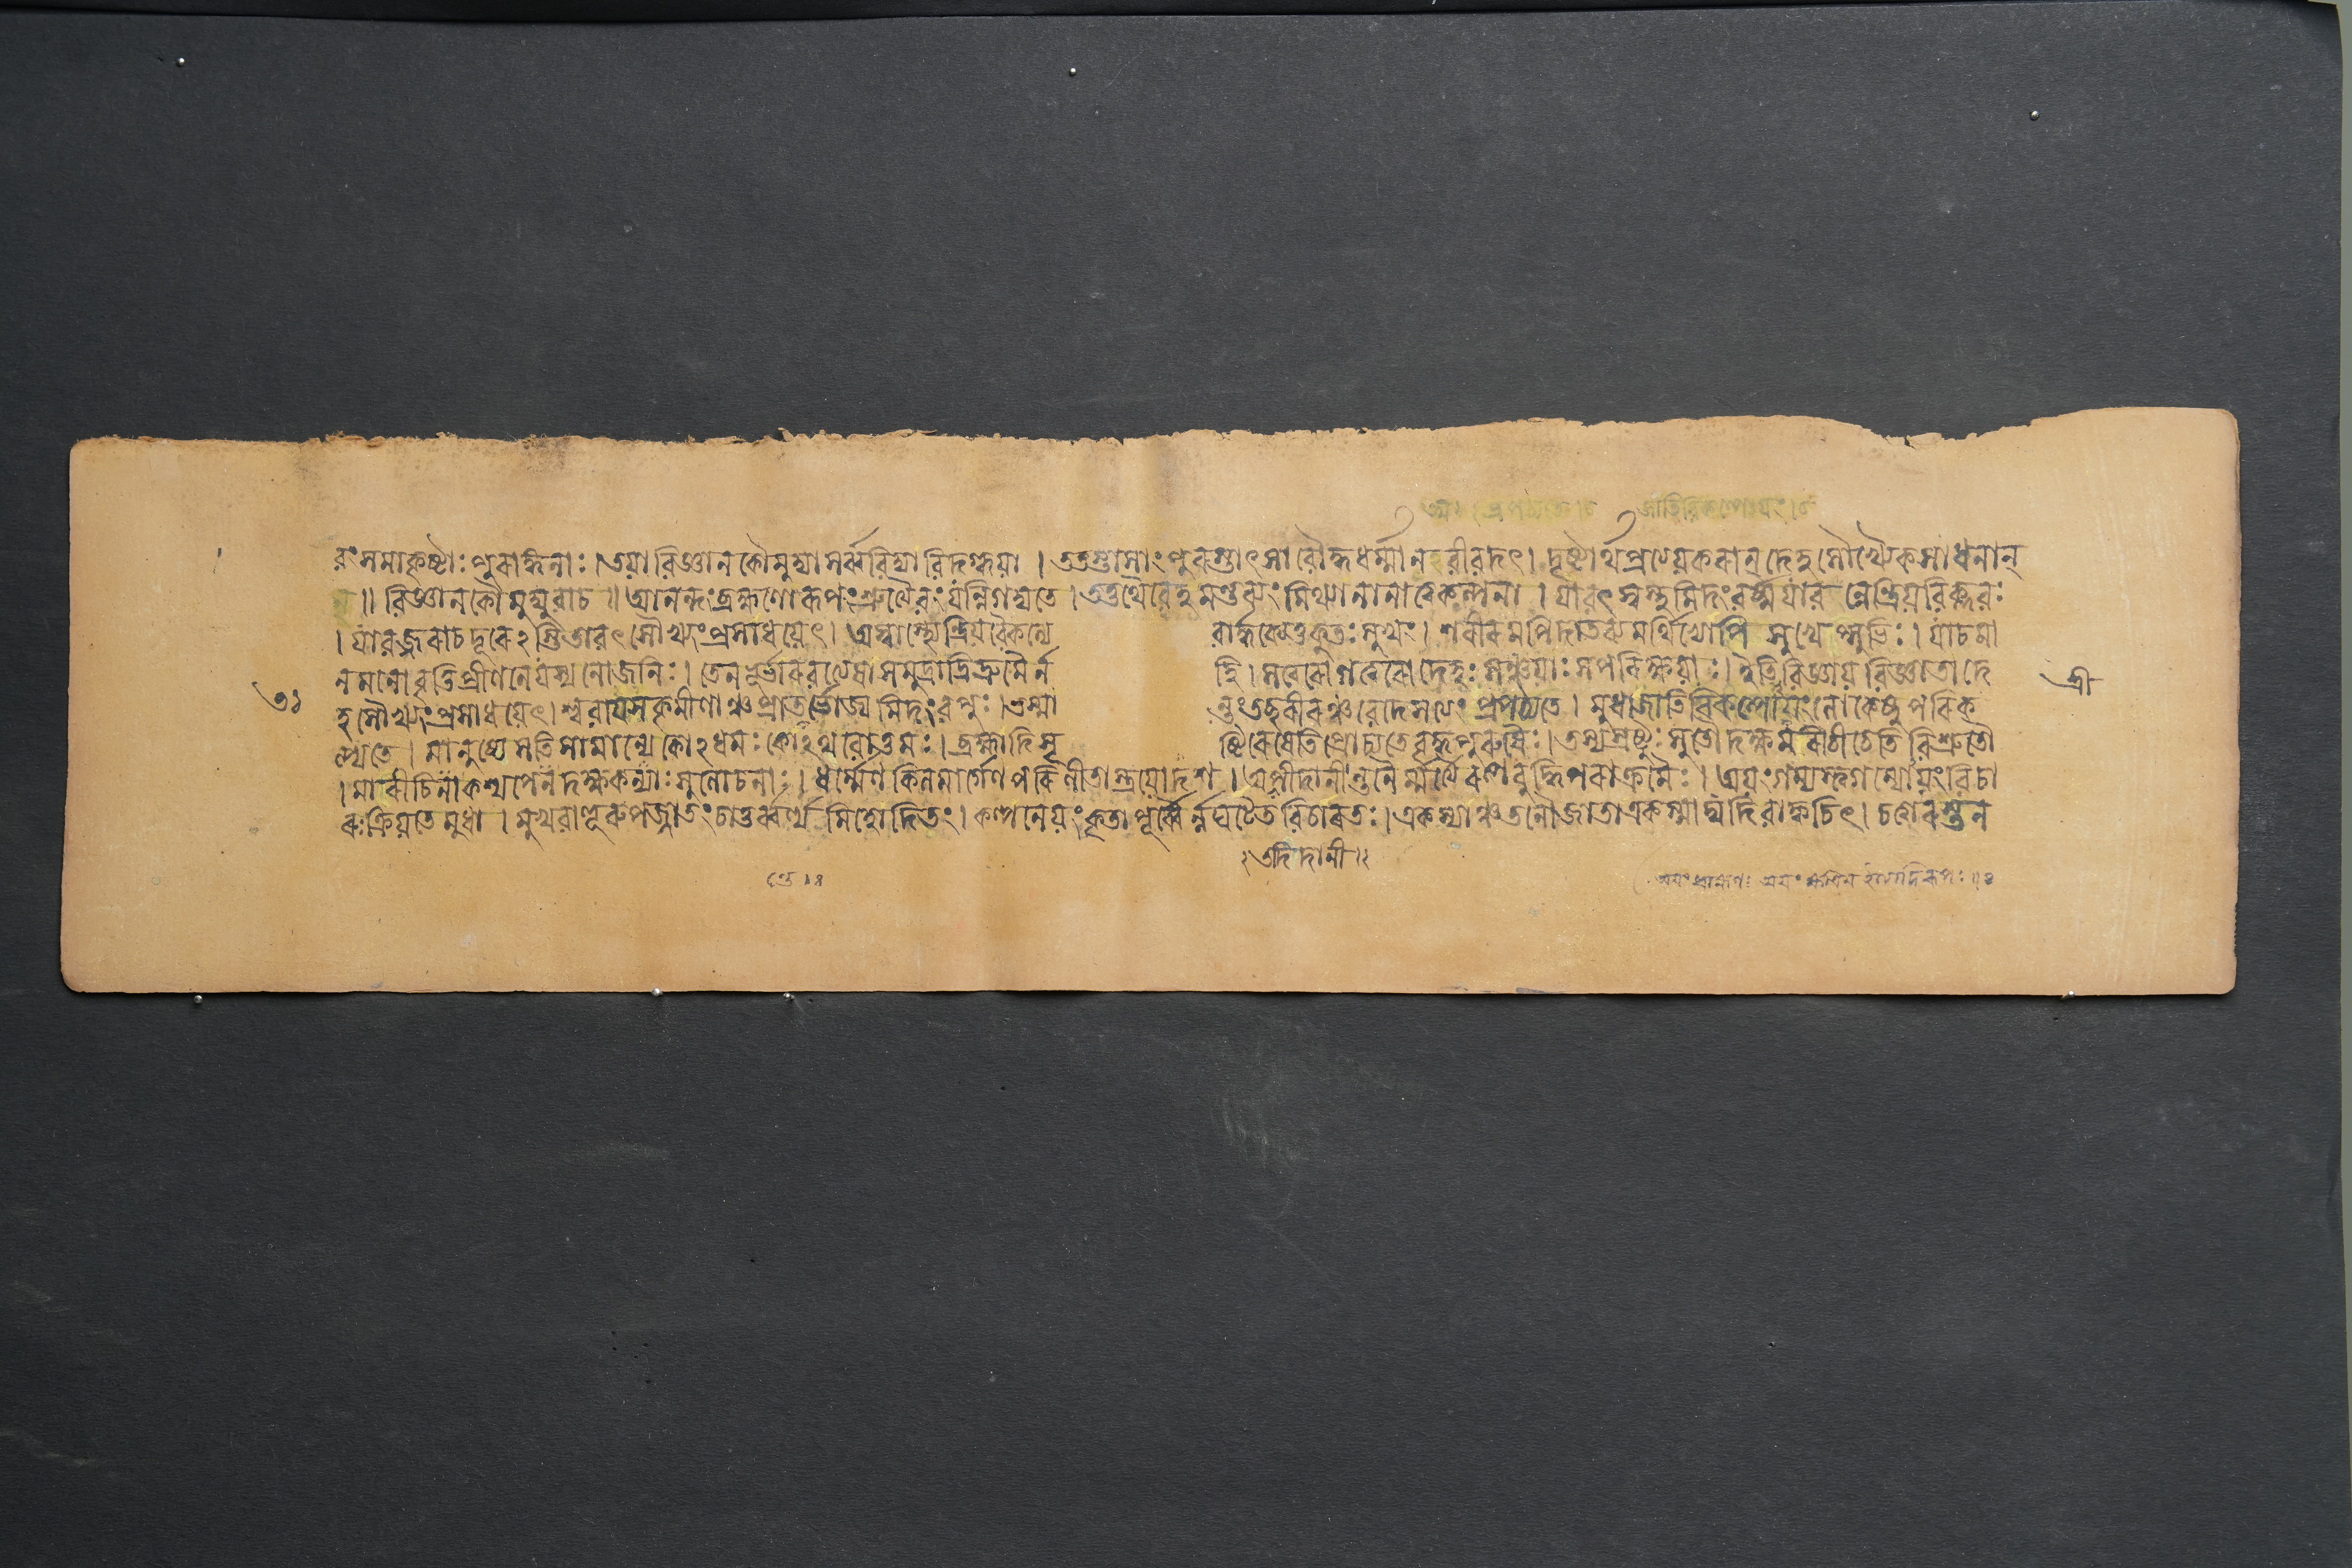 বং সমাকৃষ্টাঃ পুরাঙ্গনাঃ। তয়া বিজ্ঞানকৌমুদ্যা সর্ব্ববিদ্যাবিদগ্ধয়া । ততস্তাসাং পুরস্তাৎ সা বৌদ্ধধর্ম্মানবীবদৎ। দৃষ্টার্থপ্রত্যেয়করান্ দেহসৌখ্যৈকসাধনান্
॥ বিজ্ঞানকৌমুদ্যুবাচ ॥ আনন্দং ব্রহ্মণো রূপং শ্রুত্যৈবং যন্নিগদ্যতে । তত্তথৈবেহ মন্তব্যং মিথ্যা নানাত্বকল্পনা । যাবৎ স্বস্থমিদং বর্ষ্ম যাবন্নেন্দ্রিয়বিক্লবঃ
। যাবজ্জরা চ দূরেঽস্তি তাবৎ সৌখ্যং প্রসাধয়েৎ। অস্বাস্থ্যেন্দ্রিয়বৈকল্যে বার্দ্ধক্যে তু কুতঃ সুখং। শরীরমপি দাতব্যমর্থিভ্যোপি সুখেপ্সুভিঃ। যাচমা
নমনোবৃত্তিপ্রীণনে যস্য নো জনিঃ। তেন ভূর্ভারবত্যেষা সমুদ্রাদ্রিদ্রুমৈর্ন হি। সত্বরো গত্বরো দেহঃ সঞ্চয়াঃ সপরিক্ষয়াঃ। ইতি বিজ্ঞায় বিজ্ঞাতা দে
হসৌখ্যং প্রসাধয়েৎ। শ্ববায়সকৃমীণাঞ্চ প্রান্তে ভোজ্যমিদং বপুঃ। ভস্মান্তং তচ্ছরীরঞ্চ বেদে সত্যং প্রপঠ্যতে । মুধা জাতিবিকল্পোয়ং লোকেষু পরিক
ল্প্যতে। মানুষ্যে সতি সামান্যে কোঽধমঃ কোঽথ বোত্তমঃ। ব্রহ্মাদিসৃষ্টিরেষেতি প্রোচ্যতে বৃদ্ধপুরুষৈঃ। তস্য স্রষ্টুঃ সুতৌ দক্ষমরীচী চেতি বিশ্রুতৌ
। মারীচিনা কশ্যপেন দক্ষকন্যাঃ সুলোচনাঃ। ধর্ম্মেণ কিল মার্গেণ পরিণীতাস্ত্রয়োদশ । অপীদানীন্তনৈর্ম্মর্ত্যৈরল্পবুদ্ধিপরাক্রমৈঃ। অয়ং গম্যস্ত্বগম্যোয়ং বিচা
রঃ ক্রিয়তে মুধা । মুখবাহূরুপজ্জাতং চাতুর্ব্বর্ণ্যমিহোদিতং। কল্পনেয়ং কৃতা পূর্ব্বৈর্ন্ন ঘটেত বিচারতঃ। একস্যাঞ্চ তনৌ জাতা একস্মাদ্যদি বা ক্বচিৎ। চত্বারস্তন
শ্রী